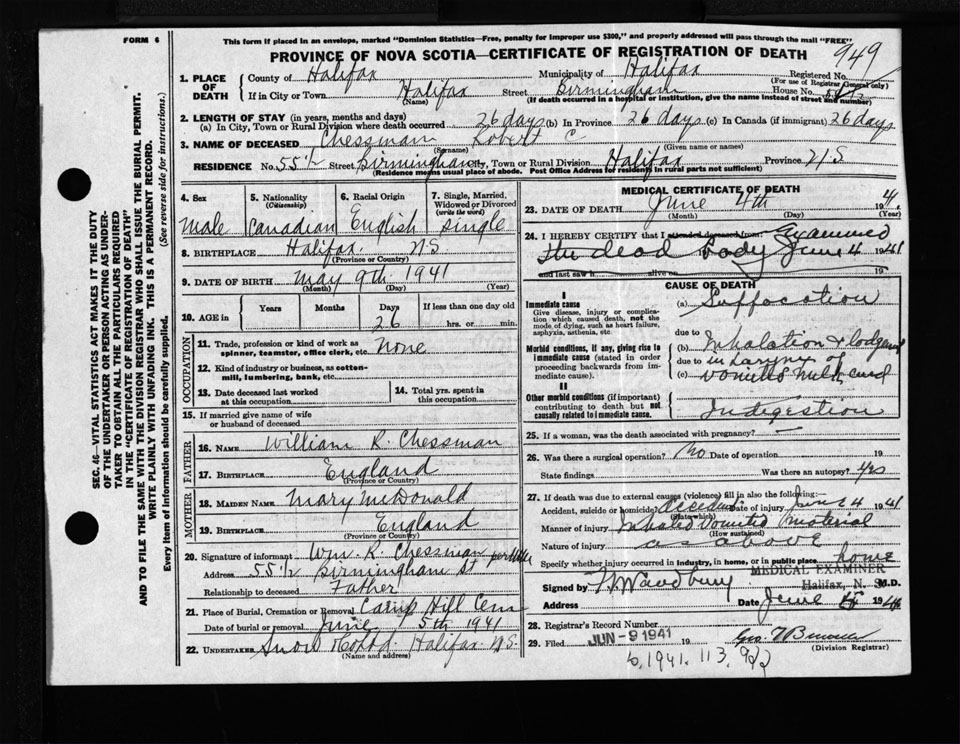 FORM 6
This form if placed in an envelope, marked "Dominion Statistics—Free, penalty for improper use $300," and properly addressed will pass through the mail "FREE"
PROVINCE OF NOVA SCOTIA—CERTIFICATE OF REGISTRATION OF DEATH
949
1. PLACE OF DEATH
County of Halifax Municipality of Halifax Registered No.
(For use of Registrar General only)
If in City or Town Halifax Street Birmingham House No.
(Name) (If death occurred in a hospital or institution, give the name instead of street and number)
2. LENGTH OF STAY (in years, months and days)
(a) In City, Town or Rural Division where death occurred 26 days (b) In Province 26 days (c) In Canada (if immigrant) 26 days
3. NAME OF DECEASED Chessman Robert C
(Surname) (Given name or names)
RESIDENCE No. 55 1/2 Street Birmingham City, Town or Rural Division Halifax Province N.S
(Residence means usual place of abode. Post Office Address for residents in rural parts not sufficient)
4. Sex
5. Nationality (Citizenship)
6. Racial Origin
7. Single, Married, Widowed or Divorced (write the word)
Male Canadian English Single
8. BIRTHPLACE Halifax N.S.
(Province or Country)
9. DATE OF BIRTH May 9th 1941
(Month) (Day) (Year)
10. AGE in Years Months Days If less than one day old
26 hrs. or min.
OCCUPATION
11. Trade, profession or kind of work as spinner, teamster, office clerk, etc. None
12. Kind of industry or business, as cotton-mill, lumbering, bank, etc.
13. Date deceased last worked at this occupation
14. Total yrs. spent in this occupation
15. If married give name of wife or husband of deceased
FATHER
16. Name William R. Chessman
17. Birthplace England
(Province or Country)
MOTHER
18. Maiden Name Mary McDonald
19. Birthplace England
(Province or Country)
20. Signature of informant Wm. R. Chessman per
Address 55 1/2 Birmingham St
Relationship to deceased Father
21. Place of Burial, Cremation or Removal Camp Hill Cem
Date of burial or removal June 5th 1941
22. Undertaker Snow & Co Ltd. Halifax N.S.
(Name and address)
MEDICAL CERTIFICATE OF DEATH
23. DATE OF DEATH June 4th 19 41
(Month) (Day) (Year)
24. I HEREBY CERTIFY that I attended deceased from Examined
the dead body June 4 1941
and last saw h alive on 19
CAUSE OF DEATH
I
Immediate cause
Give disease, injury or complication which caused death, not the mode of dying, such as heart failure, asphyxia, asthenia, etc.
(a) Suffocation
due to
Morbid conditions, if any, giving rise to immediate cause (stated in order proceeding backwards from immediate cause).
(b) Inhalation & lodgment
due to in larynx of
(c) vomited milk curd
II
Other morbid conditions (if important) contributing to death but not causally related to immediate cause.
Indigestion
25. If a woman, was the death associated with pregnancy? —
26. Was there a surgical operation? No Date of operation
State findings Was there an autopsy? yes
27. If death was due to external causes (violence) fill in also the following:
Accident, suicide or homicide? Accident Date of injury June 4 1941
(State which)
Manner of injury Inhaled Vomited material
(How sustained)
Nature of injury as above
Specify whether injury occurred in industry, in home, or in public place home
MEDICAL EXAMINER
Halifax, N. S.
Signed by M.D.
Address Date June 1941
28. Registrar's Record Number
29. Filed JUN - 9 1941 19
(Division Registrar)
6.1941. 113.922
SEC. 46—VITAL STATISTICS ACT MAKES IT THE DUTY
OF THE UNDERTAKER OR PERSON ACTING AS UNDER-
TAKER TO OBTAIN ALL THE PARTICULARS REQUIRED
IN THE "CERTIFICATE OF REGISTRATION OF DEATH"
AND TO FILE THE SAME WITH THE DIVISION REGISTRAR WHO SHALL ISSUE THE BURIAL PERMIT.
WRITE PLAINLY WITH UNFADING INK. THIS IS A PERMANENT RECORD.
Every item of information should be carefully supplied. (See reverse side for instructions.)